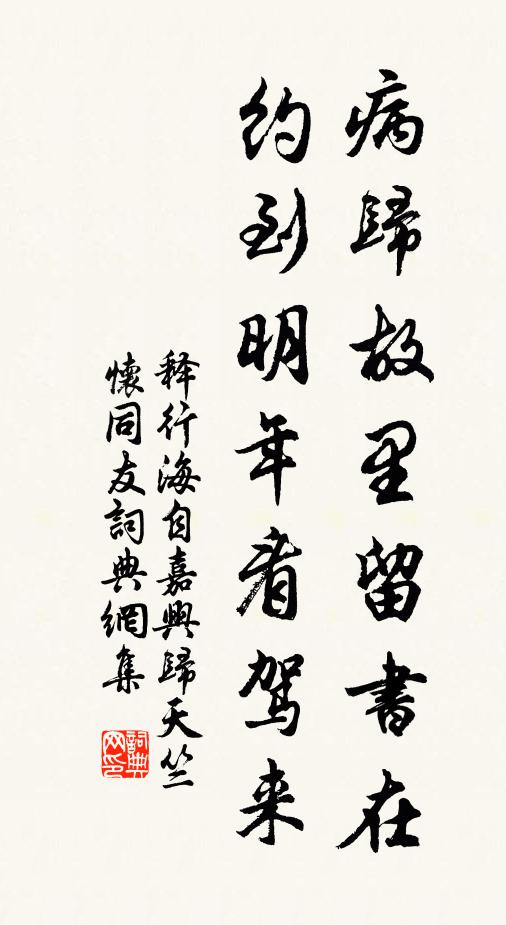 病歸故里留書在
約到明年着駕来
释行海自嘉興歸天竺
懷同友詞典網集
詞典网印